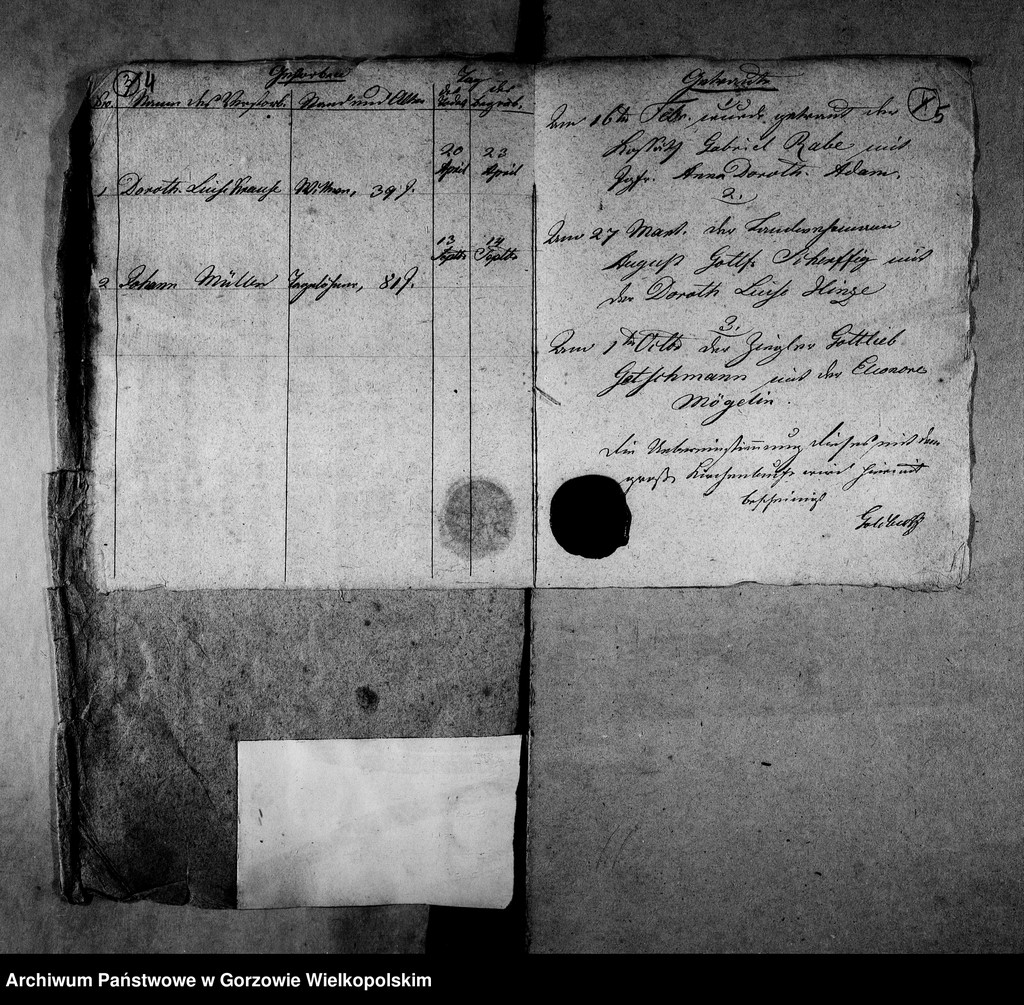 3 4
Gestorben
Nr. Name des Verstorb. Stand und Alter Tag des Todes der begräb.
20 April 23 April
1 Doroth. Luise Krause Wittwe, 39 J.
13 Septbr 14 Septbr
2 Johann Müller Tagelöhner, 81 J.
Getraute
5
1.
Am 16ten Febr. wurde getraut der
Kossäth Gabriel Rabe mit
Jgfr. Anna Doroth. Adam.
2.
Am 27 Mart. der Landwehrmann
August Gottfr. Scherffig mit
der Doroth Luise Hinze
3.
Am 1ten Octbr der Ziegler Gottlieb
Getschmann mit der Eleonore
Mögelin.
Die Uebereinstimmung dieses mit dem
große Kirchenbuche wird hiermit
bescheinigt
Archiwum Państwowe w Gorzowie Wielkopolskim